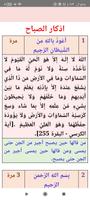 اذكار الصباح
1 أعوذ بالله من الشيطان الرجيم 1 مرة
اللّهُ لاَ إِلَـهَ إِلاَّ هُوَ الْحَيُّ الْقَيُّومُ لاَ
تَأْخُذُهُ سِنَةٌ وَلاَ نَوْمٌ لَّهُ مَا فِي
السَّمَاوَاتِ وَمَا فِي الأَرْضِ مَن ذَا
الَّذِي يَشْفَعُ عِنْدَهُ إِلاَّ بِإِذْنِهِ يَعْلَمُ مَا
بَيْنَ أَيْدِيهِمْ وَمَا خَلْفَهُمْ وَلاَ
يُحِيطُونَ بِشَيْءٍ مِّنْ عِلْمِهِ إِلاَّ بِمَا
شَاء وَسِعَ كُرْسِيُّهُ السَّمَاوَاتِ
وَالأَرْضَ وَلاَ يَؤُودُهُ حِفْظُهُمَا وَهُوَ
الْعَلِيُّ الْعَظِيمُ. [البقرة 255].
من قالها حين يصبح أجير من الجن حتى
يمسى ومن قالها حين يمسى أجير من
الجن حتى يصبح.
2 بِسْمِ اللهِ الرَّحْمنِ الرَّحِيم 3 مرة